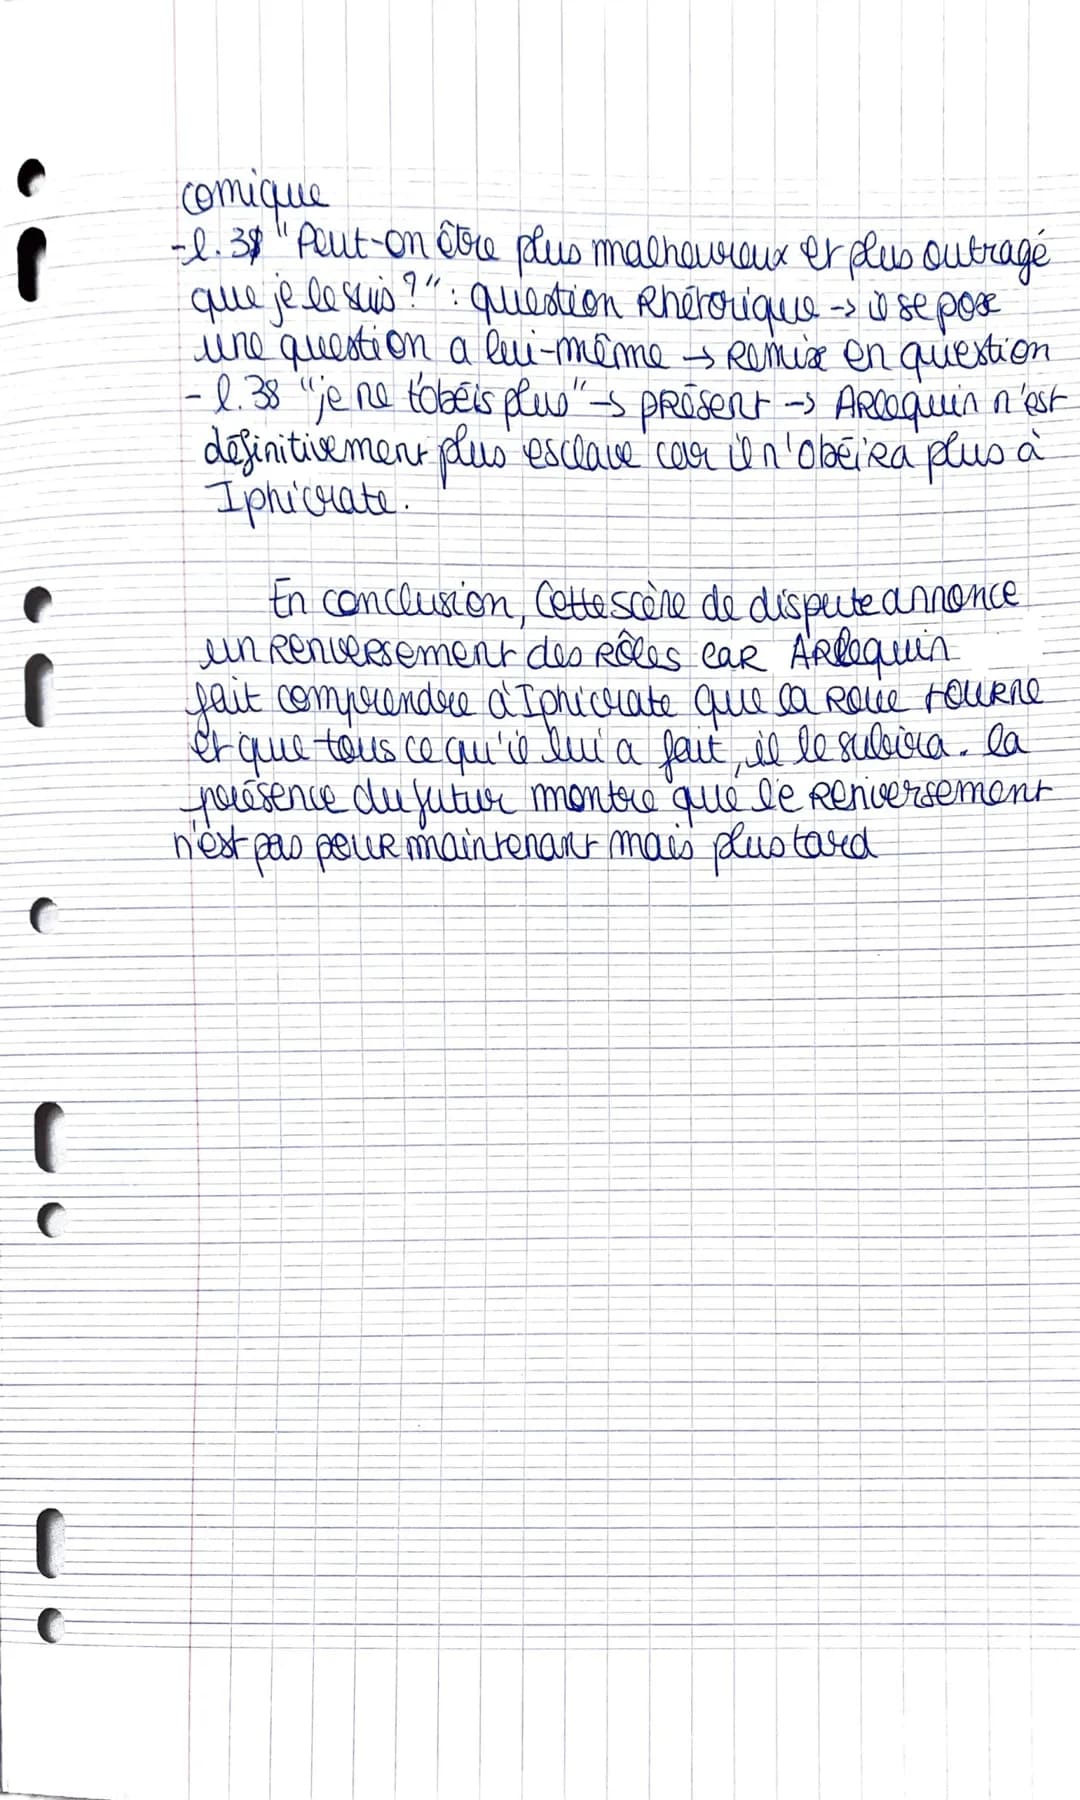 comique
-l. 3 "Peut-on être plus malheureux et plus outragé
que je le suis ?" : question Rhétorique -> il se pose
une question a lui-même -> Remise en question
- l. 38 "je ne t'obéis plus" -> présent -> Arlequin n'est
définitivement plus esclave car il n'obéira plus à
Iphicrate.
En conclusion, Cette scène de dispute annonce
un Renversement des Rôles car Arlequin
fait comprendre à Iphicrate que la Roue tourne
et que tous ce qu'il lui a fait, il le subira. la
présence du futur montre que le Renversement
n'est pas pour maintenant mais plus tard